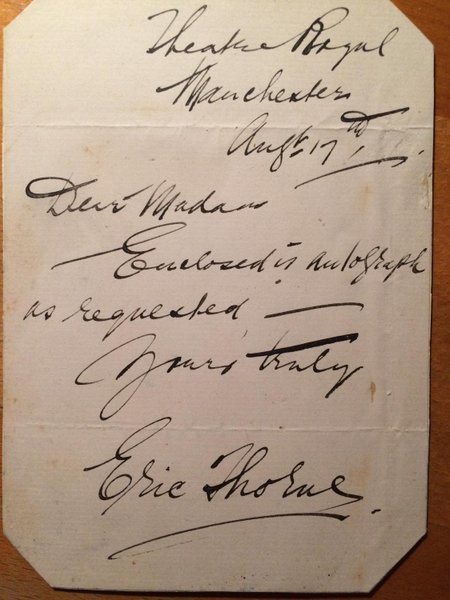 Theatre Royal
Manchester
Augt 17th.
Dear Madam
Enclosed is autograph
as requested —
Yours truly
Eric Thorne.